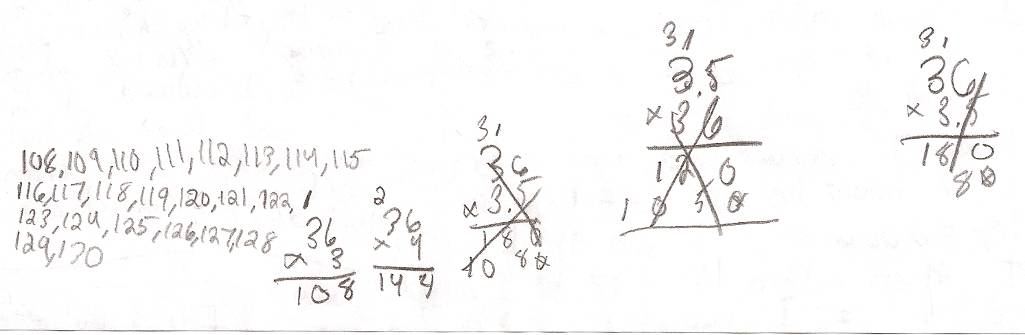 108,109,110,111,112,113,114,115
116,117,118,119,120,121,122,
123,124,125,126,127,128
129,130
1
36
x 3
108
2
36
x 4
144
31
36
x 3.5
180
1080
31
3.5
x 36
120
1050
31
36
x 3.5
180
80